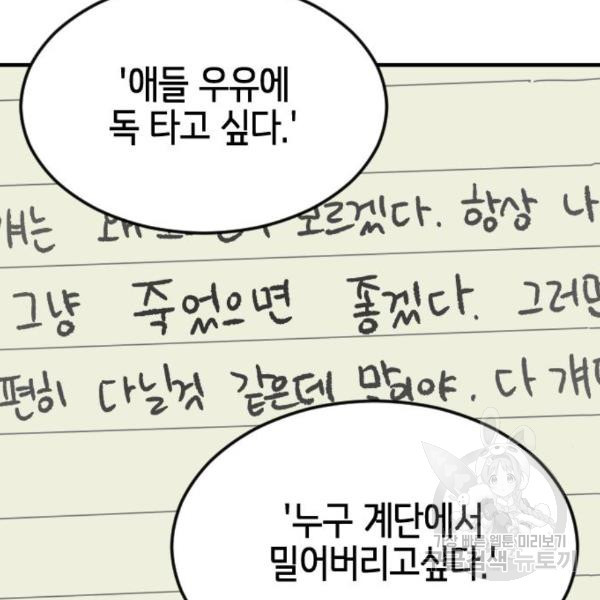 '애들 우유에
독 타고 싶다.'
걔는 왜 모르겠다. 항상 나
그냥 죽었으면 좋겠다. 그러면
편히 다닐것 같은데 말이야. 다 걔
'누구 계단에서
밀어버리고싶다.'
가장 빠른 웹툰 미리보기
구글검색 뉴토끼